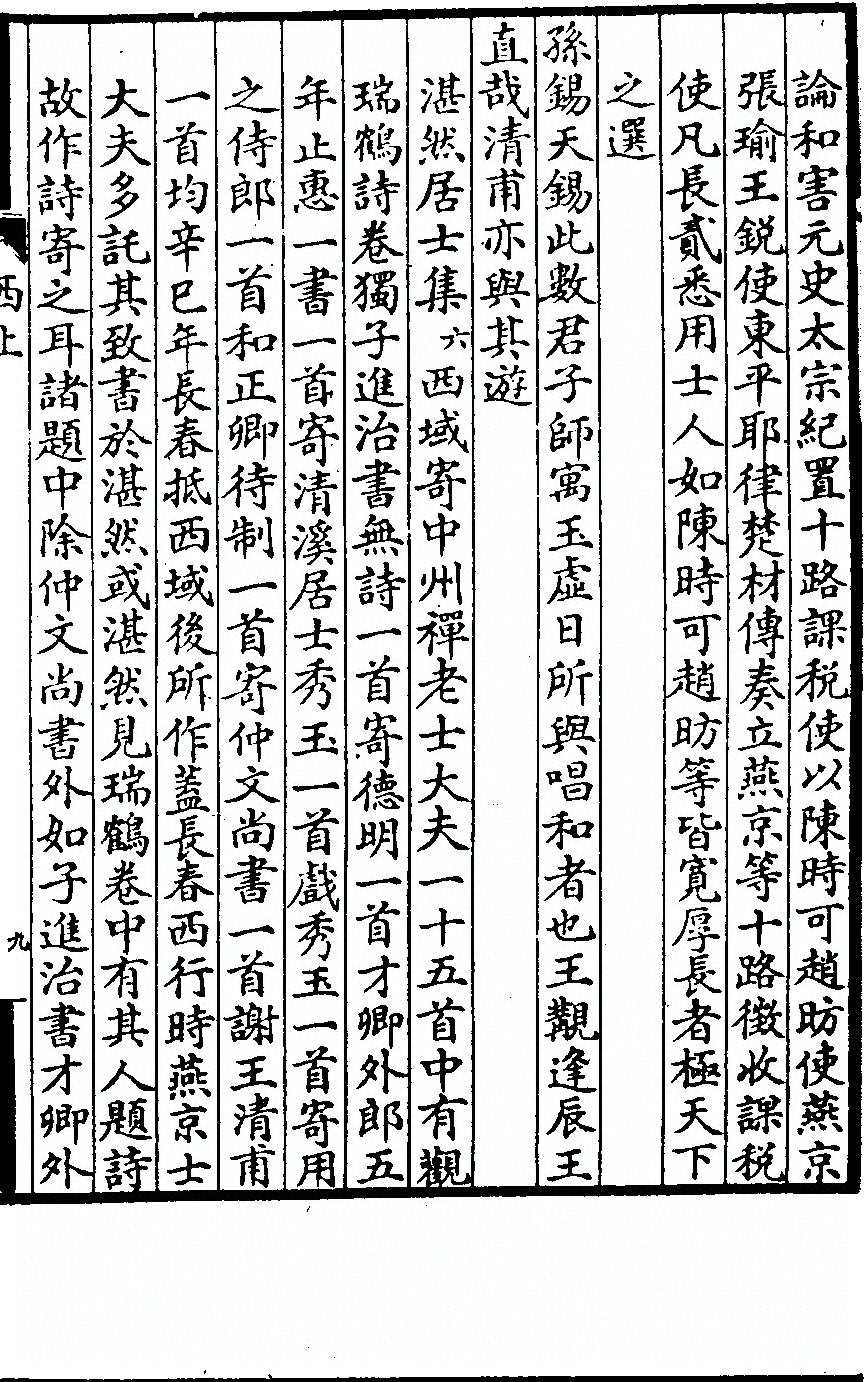 論和害元史太宗紀置十路課税使以陳時可趙昉使燕京
張瑜王鋭使東平耶律楚材傳奏立燕京等十路徵收課税
使凡長貳悉用士人如陳時可趙昉等皆寬厚長者極天下
之選
孫錫天錫此數君子師寓玉虛日所與唱和者也王觀逢辰王
直哉清甫亦與其遊
湛然居士集六西域寄中州禪老士大夫一十五首中有觀
瑞鶴詩卷獨子進治書無詩一首寄德明一首才卿外郎五
年止惠一書一首寄清溪居士秀玉一首戲秀玉一首寄用
之侍郎一首和正卿待制一首寄仲文尚書一首謝王清甫
一首均辛巳年長春抵西域後所作蓋長春西行時燕京士
大夫多託其致書於湛然或湛然見瑞鶴卷中有其人題詩
故作詩寄之耳諸題中除仲文尚書外如子進治書才卿外
西上
九